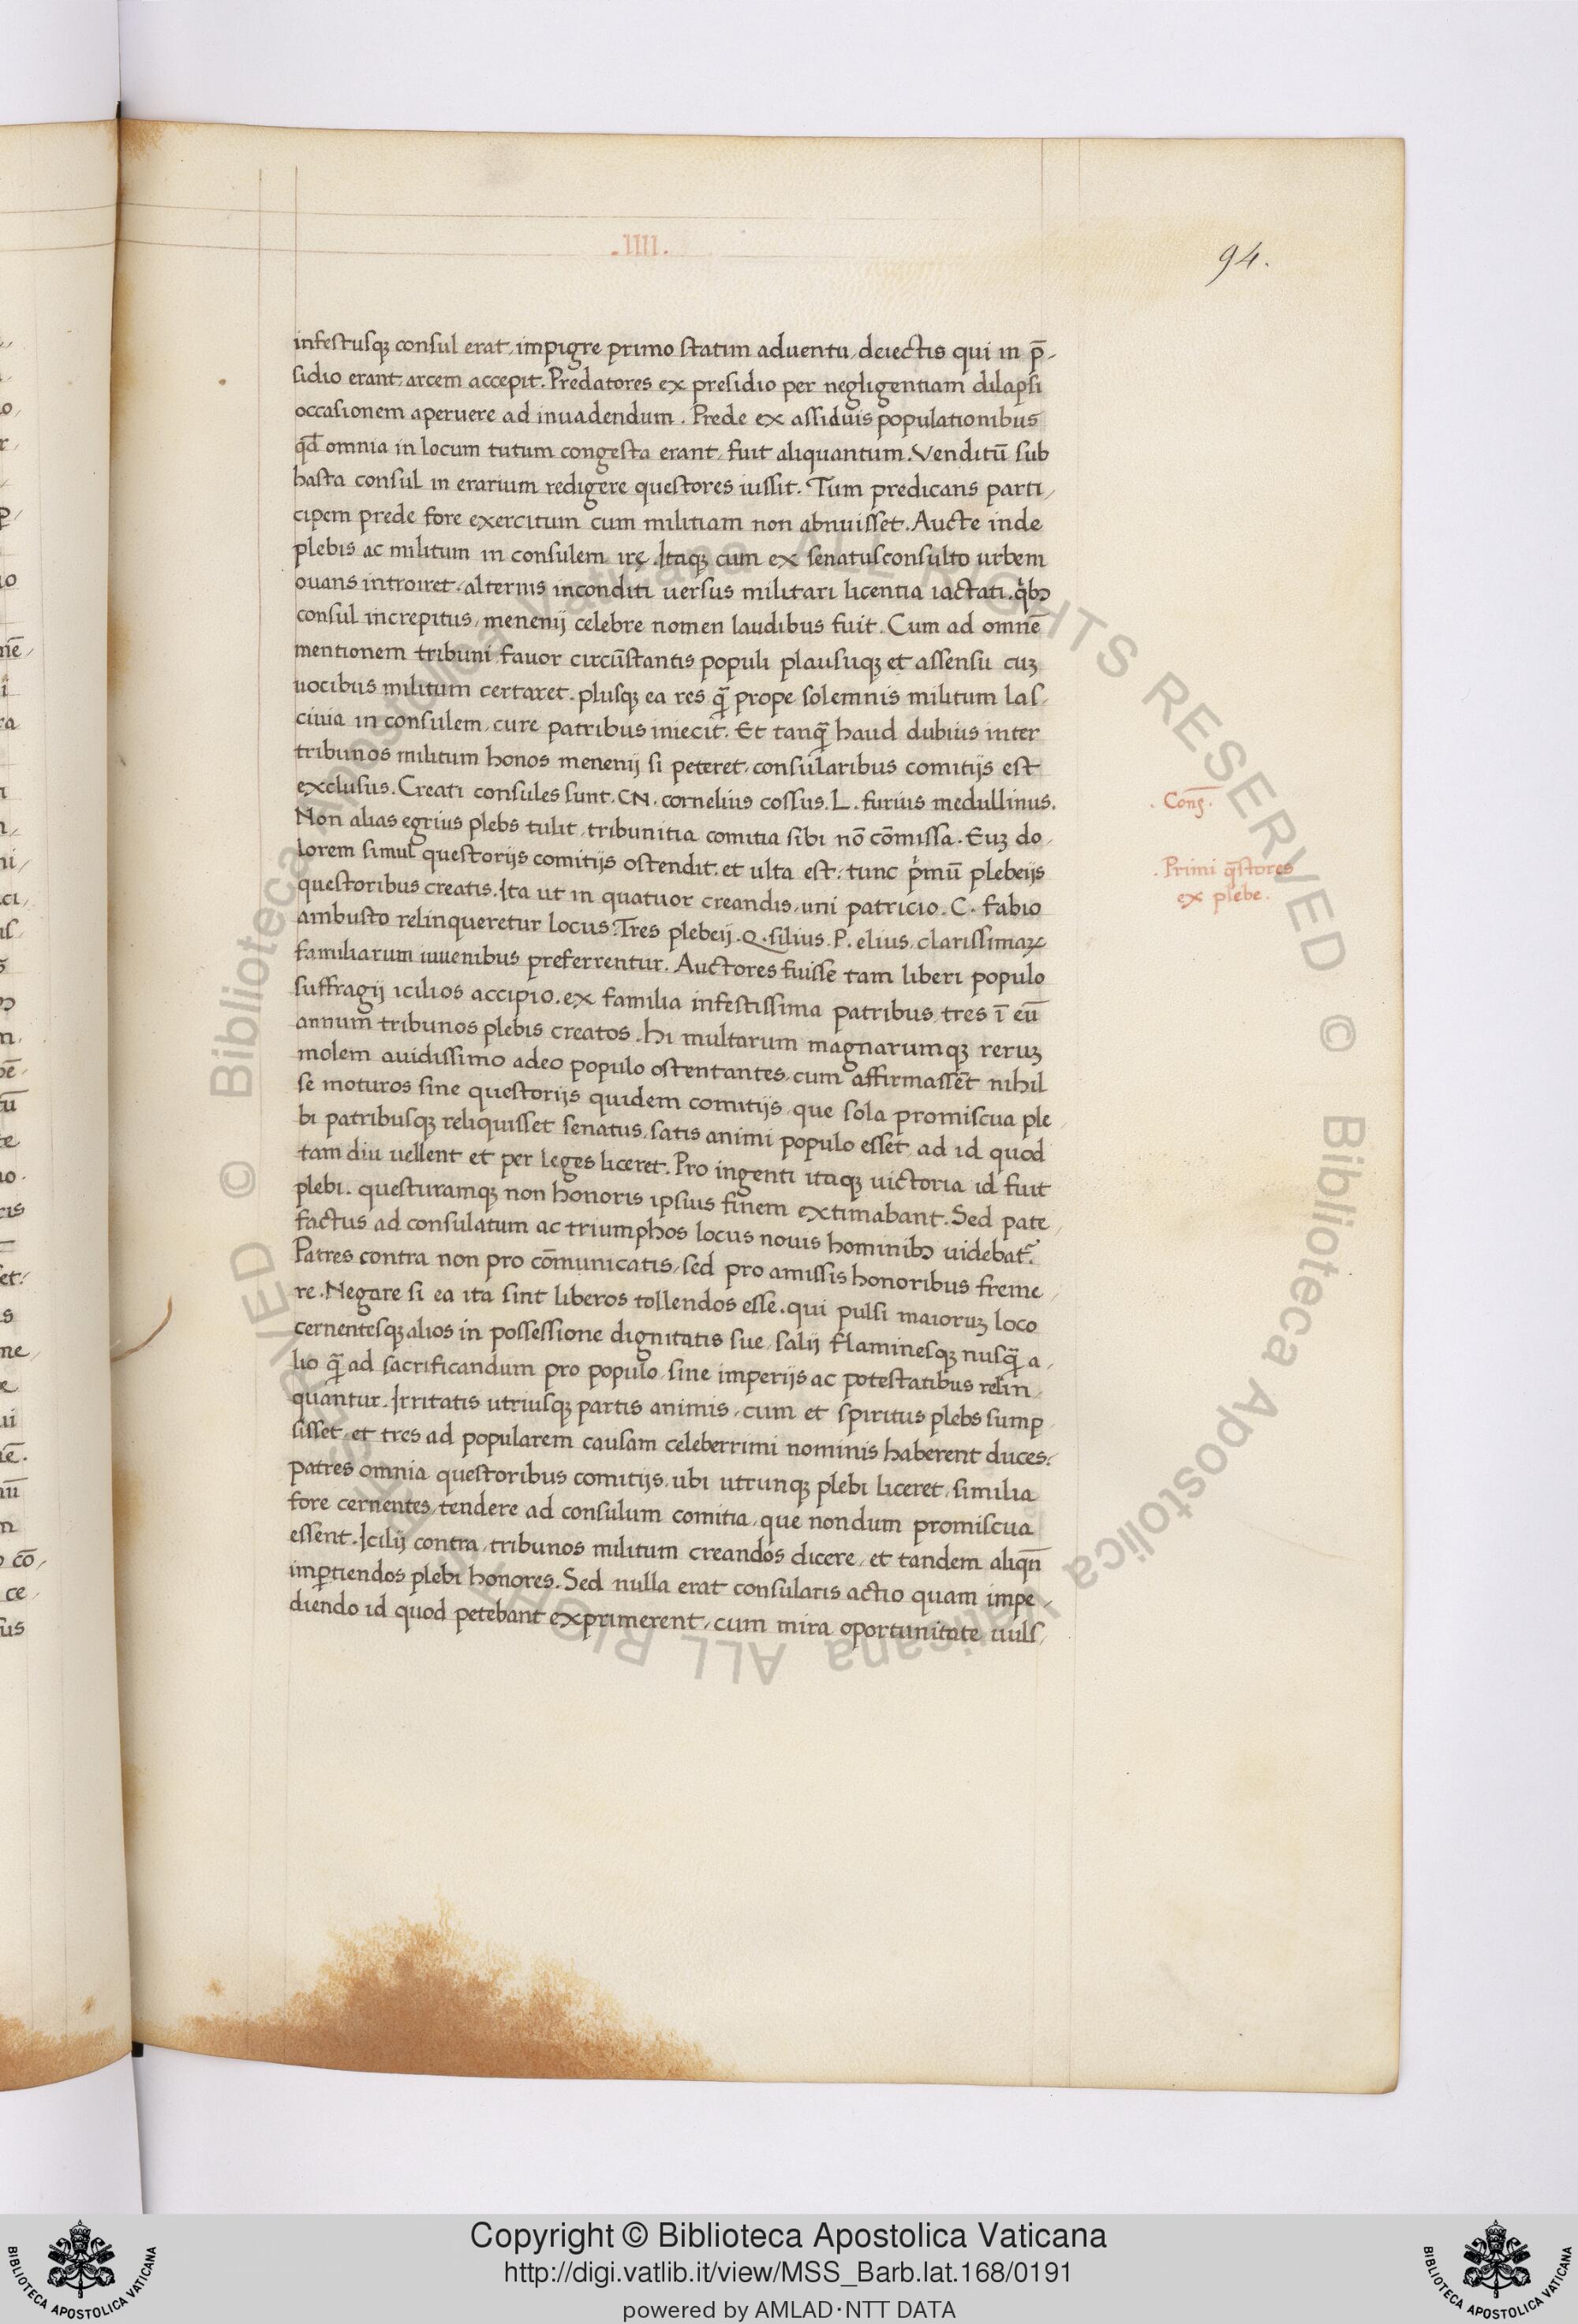 .IIII.
94.
infestusqꝫ consul erat, impigre primo statim aduentu, deiectis qui in p̄-
sidio erant, arcem accepit. Predatores ex presidio per negligentiam dilapsi
occasionem aperuere ad inuadendum. Prede ex assiduis populationibus
qđ omnia in locum tutum congesta erant, fuit aliquantum. Venditū sub
hasta consul in erarium redigere questores iussit. Tum predicans parti-
cipem prede fore exercitum cum militiam non abnuisset. Aucte inde
plebis ac militum in consulem irę. Itaqꝫ cum ex senatusconsulto urbem
ouans introiret, alternis inconditi uersus militari licentia iactati. qͥbꝰ
consul increpitus, menenij celebre nomen laudibus fuit. Cum ad omnē
mentionem tribuni fauor circūstantis populi plausuqꝫ et assensu cuꝫ
uocibus militum certaret. plusqꝫ ea res q̄ prope solemnis militum las-
ciuia in consulem, cure patribus iniecit. Et tanq̄ haud dubius inter
tribunos militum honos menenij si peteret, consularibus comitijs est
exclusus. Creati consules sunt. CN. cornelius cossus. L. furius medullinus.
. Conſ̄.
Non alias egrius plebs tulit, tribunitia comitia sibi nō cōmissa. Euꝫ do-
lorem simul questorijs comitijs ostendit. et ulta est. tunc pͥmū plebeijs
. Primi q̄stores
questoribus creatis. Ita ut in quatuor creandis, uni patricio. C. fabio
ex plebe.
ambusto relinqueretur locus. Tres plebeij. Q. silius. P. elius, clarissimaꝝ
familiarum iuuenibus preferrentur. Auctores fuisse tam liberi populo
suffragij icilios accipio. ex familia infestissima patribus, tres ī eū
annum tribunos plebis creatos. Hi multarum magnarumqꝫ reruꝫ
molem auidissimo adeo populo ostentantes, cum affirmassēt nihil
se moturos sine questorijs quidem comitijs, que sola promiscua ple-
bi patribusqꝫ reliquisset senatus, satis animi populo esset, ad id quod
tam diu uellent et per leges liceret. Pro ingenti itaqꝫ uictoria id fuit
plebi. questuramqꝫ non honoris ipsius finem extimabant. Sed pate-
factus ad consulatum ac triumphos locus nouis hominibꝰ uidebat᷑.
Patres contra non pro cōmunicatis, sed pro amissis honoribus freme-
re. Negare si ea ita sint liberos tollendos esse. qui pulsi maioruꝫ loco
cernentesqꝫ alios in possessione dignitatis sue, salij flaminesqꝫ nusq̄ a-
lio q̄ ad sacrificandum pro populo, sine imperijs ac potestatibus relin-
quantur. Irritatis utriusqꝫ partis animis, cum et spiritus plebs sump-
sisset, et tres ad popularem causam celeberrimi nominis haberent duces.
patres omnia questoribus comitijs, ubi utrunqꝫ plebi liceret, similia
fore cernentes, tendere ad consulum comitia, que nondum promiscua
essent. Icilij contra, tribunos militum creandos dicere, et tandem aliqn̄
imꝑtiendos plebi honores. Sed nulla erat consularis actio quam impe-
diendo id quod petebant exprimerent, cum mira oportunitate uuls-
© Biblioteca Apostolica Vaticana ALL RIGHTS RESERVED © Biblioteca Apostolica Vaticana ALL RIGHTS RESERVED
Copyright © Biblioteca Apostolica Vaticana
http://digi.vatlib.it/view/MSS_Barb.lat.168/0191
powered by AMLAD·NTT DATA
BIBLIOTECA APOSTOLICA VATICANA
BIBLIOTECA APOSTOLICA VATICANA